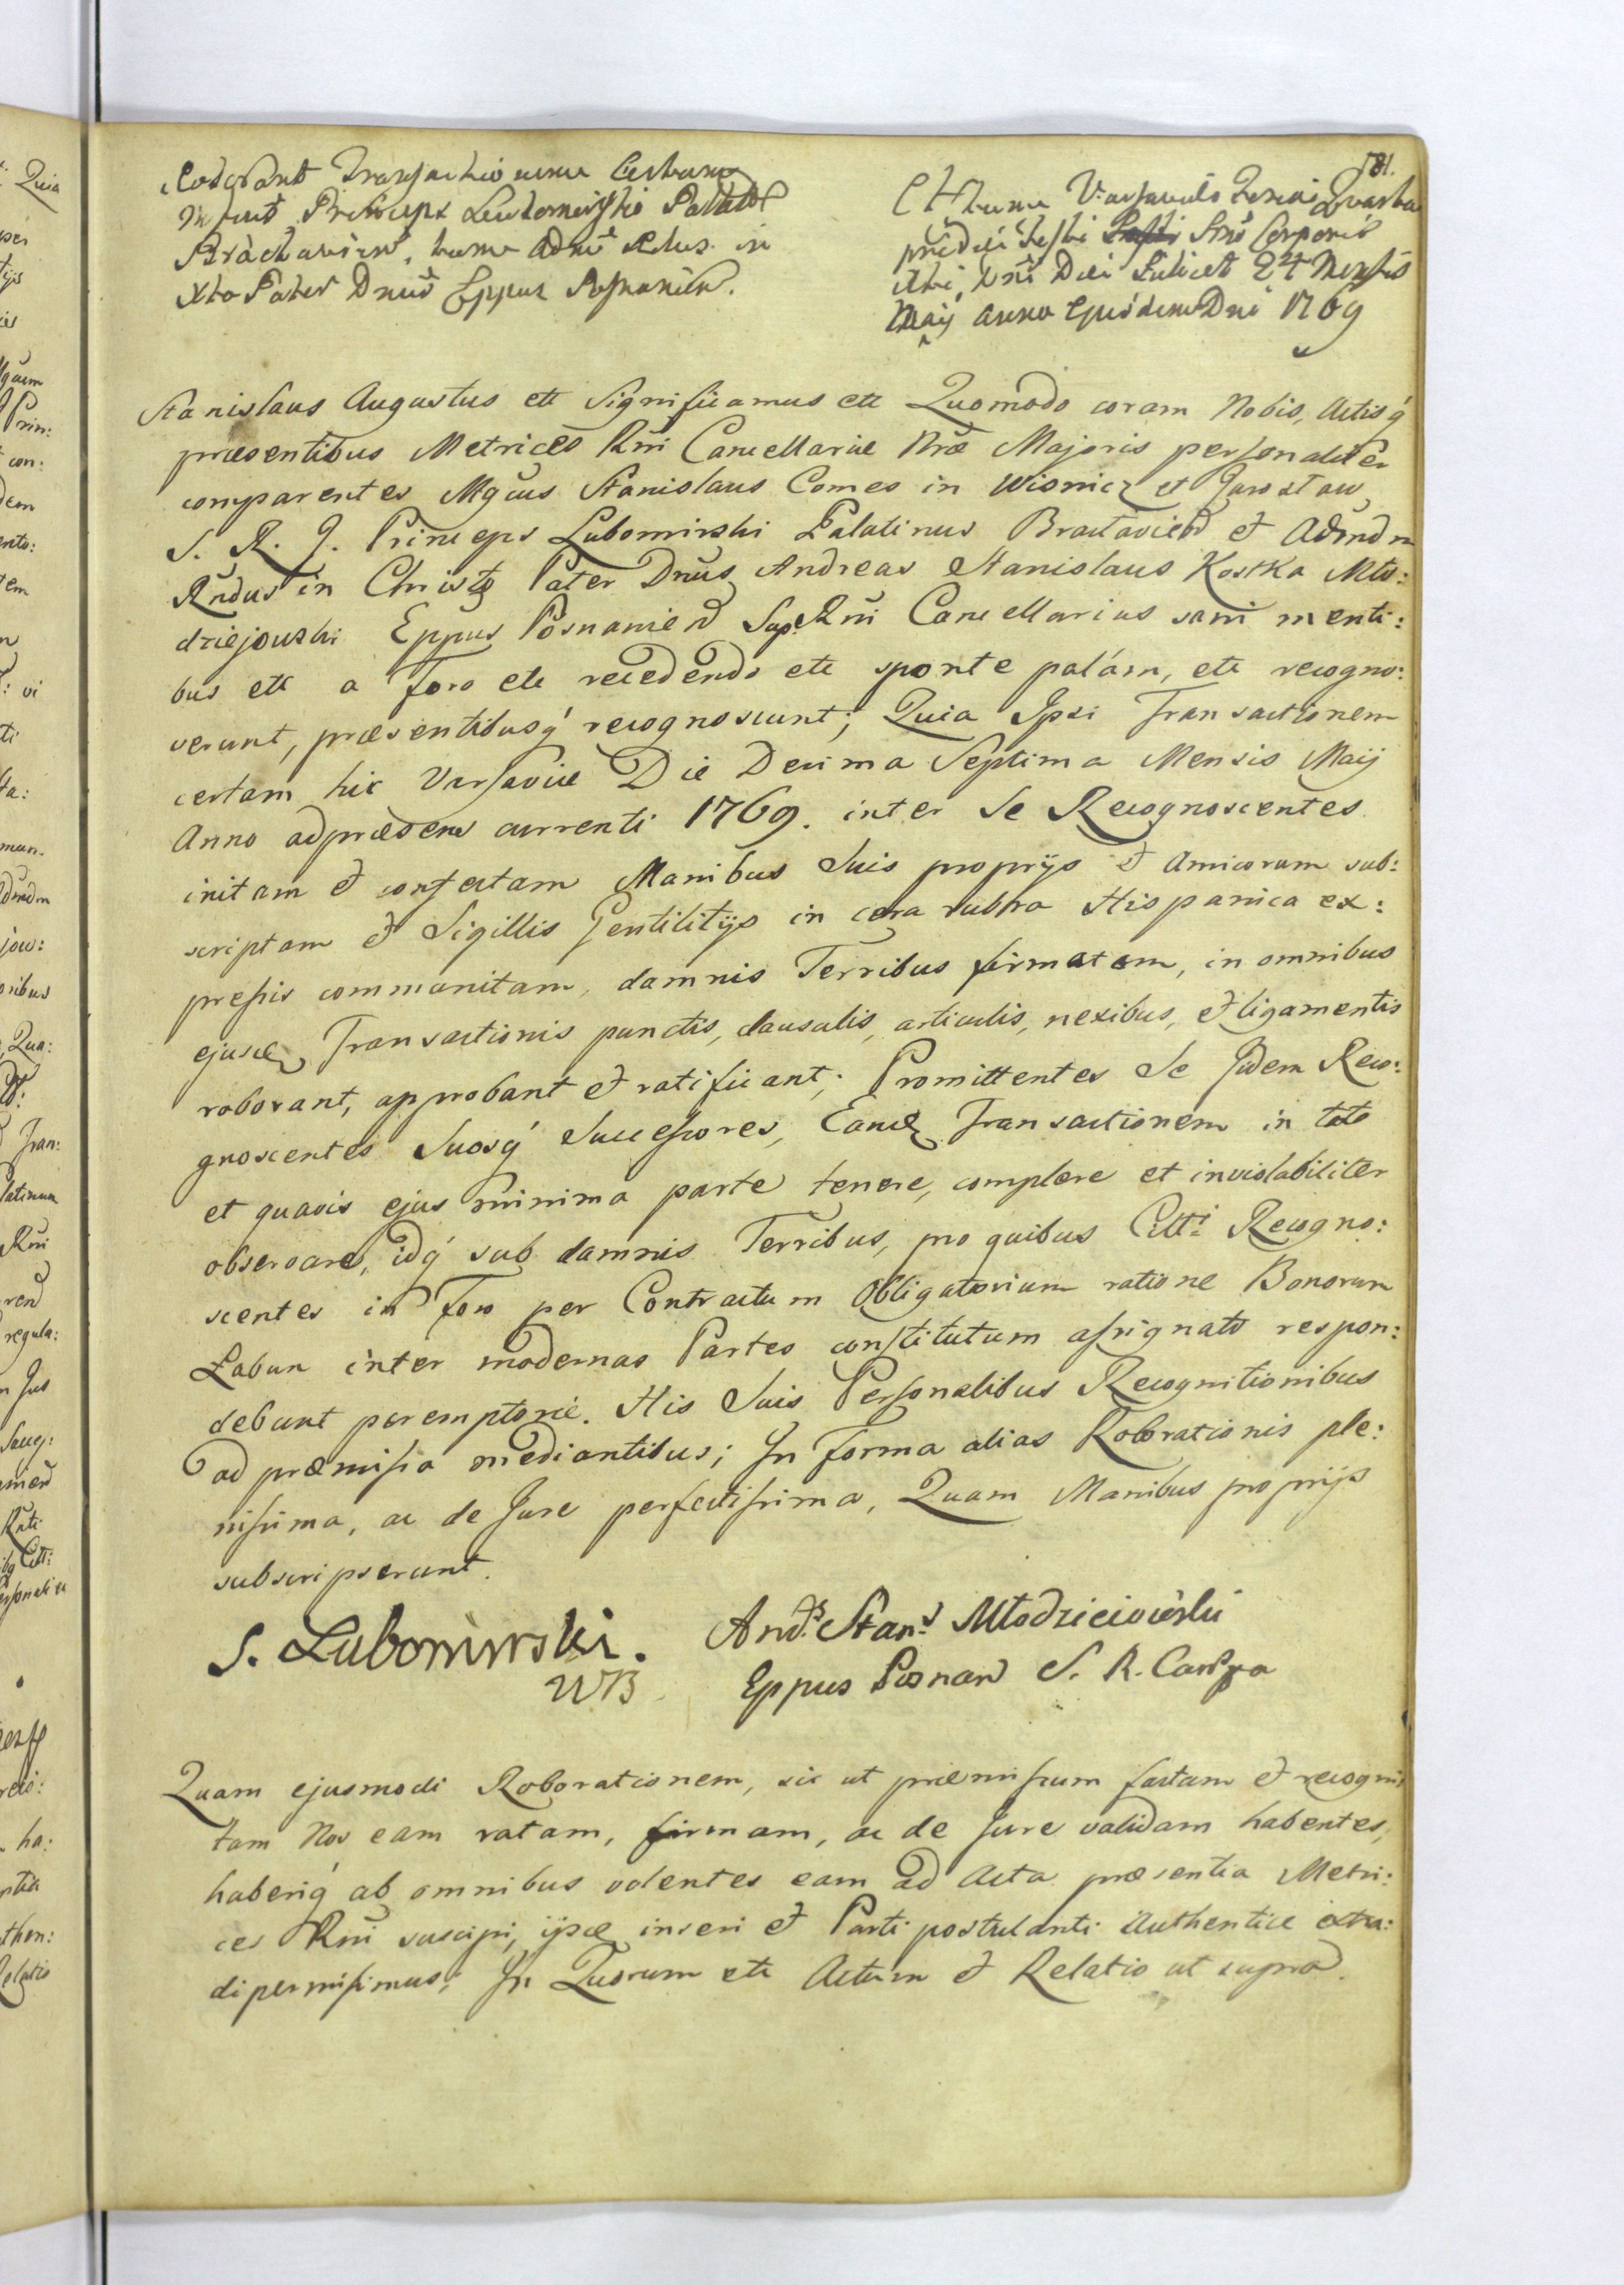 181.
Roborant Transactionem Certam
Mgnus Princeps Lubomirski Palat
Braclavien, tum Adm Rdus in
Xto Pater Dnus Eppus Posnanien.
Actum Varsaviæ Feria Quarta
pridie Festi Festi SSmi Corporis
Xti Dni Die Scilicet 24 Mensis
Maij Anno Ejusdem Dni 1769
Stanislaus Augustus ett Significamus ett Quomodo coram Nobis, Actisq́
præsentibus Metrices Rni Cancellariæ Nræ Majoris personaliter
comparentes Mgcus Stanislaus Comes in Wisnicz et Jarosław
S. R. J. Princeps Lubomirski Palatinus Braclavien et Admdm
Rndus in Christo Pater Dnus Andreas Stanislaus Kostka Mło:
dziejowski Eppus Posnanien Sup. Rni Cancellarius sani menti:
bus ett a Foro ett recedendo ett sponte palám, ett recogno:
verunt, præsentibusq́ recognoscunt; Quia Ipsi Transactionem
certam hic Varsaviæ Die Decima Septima Mensis Maij
Anno adpræsens currenti 1769. inter Se Recognoscentes
initam et confectam Manibus Suis proprijs et Amicorum sub:
scriptam et Sigillis Gentilitijs in cera rubra Hispanica ex:
pressis communitam, damnis Terribus firmatam, in omnibus
ejusdẽ Transactionis punctis, clausulis, articulis, nexibus, et ligamentis
roborant, approbant et ratificant; Promittentes Se Jidem Reco:
gnoscentes Suosq́ Successores, Eandẽ Transactionem in toto
et quavis ejus minima parte tenere, complere et inviolabiliter
observare, idq́ sub damnis Terribus, pro quibus Citti Recogno:
scentes in Foro per Contractum Obligatorium ratione Bonorum
Łabun inter modernas Partes constitutum assignato respon:
debunt peremptorie. His Suis Personalibus Recognitionibus
ad præmissa mediantibus; In Forma alias Roborationis ple:
nissima, ac de Jure perfectissima, Quam Manibus proprijs
subscripserunt.
S. Lubomirski.
WB
Andr. Stan. Młodzieiowski
Eppus Posnan S. R. Canc
Quam ejusmodi Roborationem, sic ut præmissum factam et recogni
tam Nos eam ratam, firmam, ac de Jure validam habentes,
haberiq́ ab omnibus volentes eam ad Acta præsentia Metri:
ces Rni suscipi, ijsdẽ inseri et Parti postulanti Authentice extra:
di permisimus; In Quorum ett Actum et Relatio ut supra.